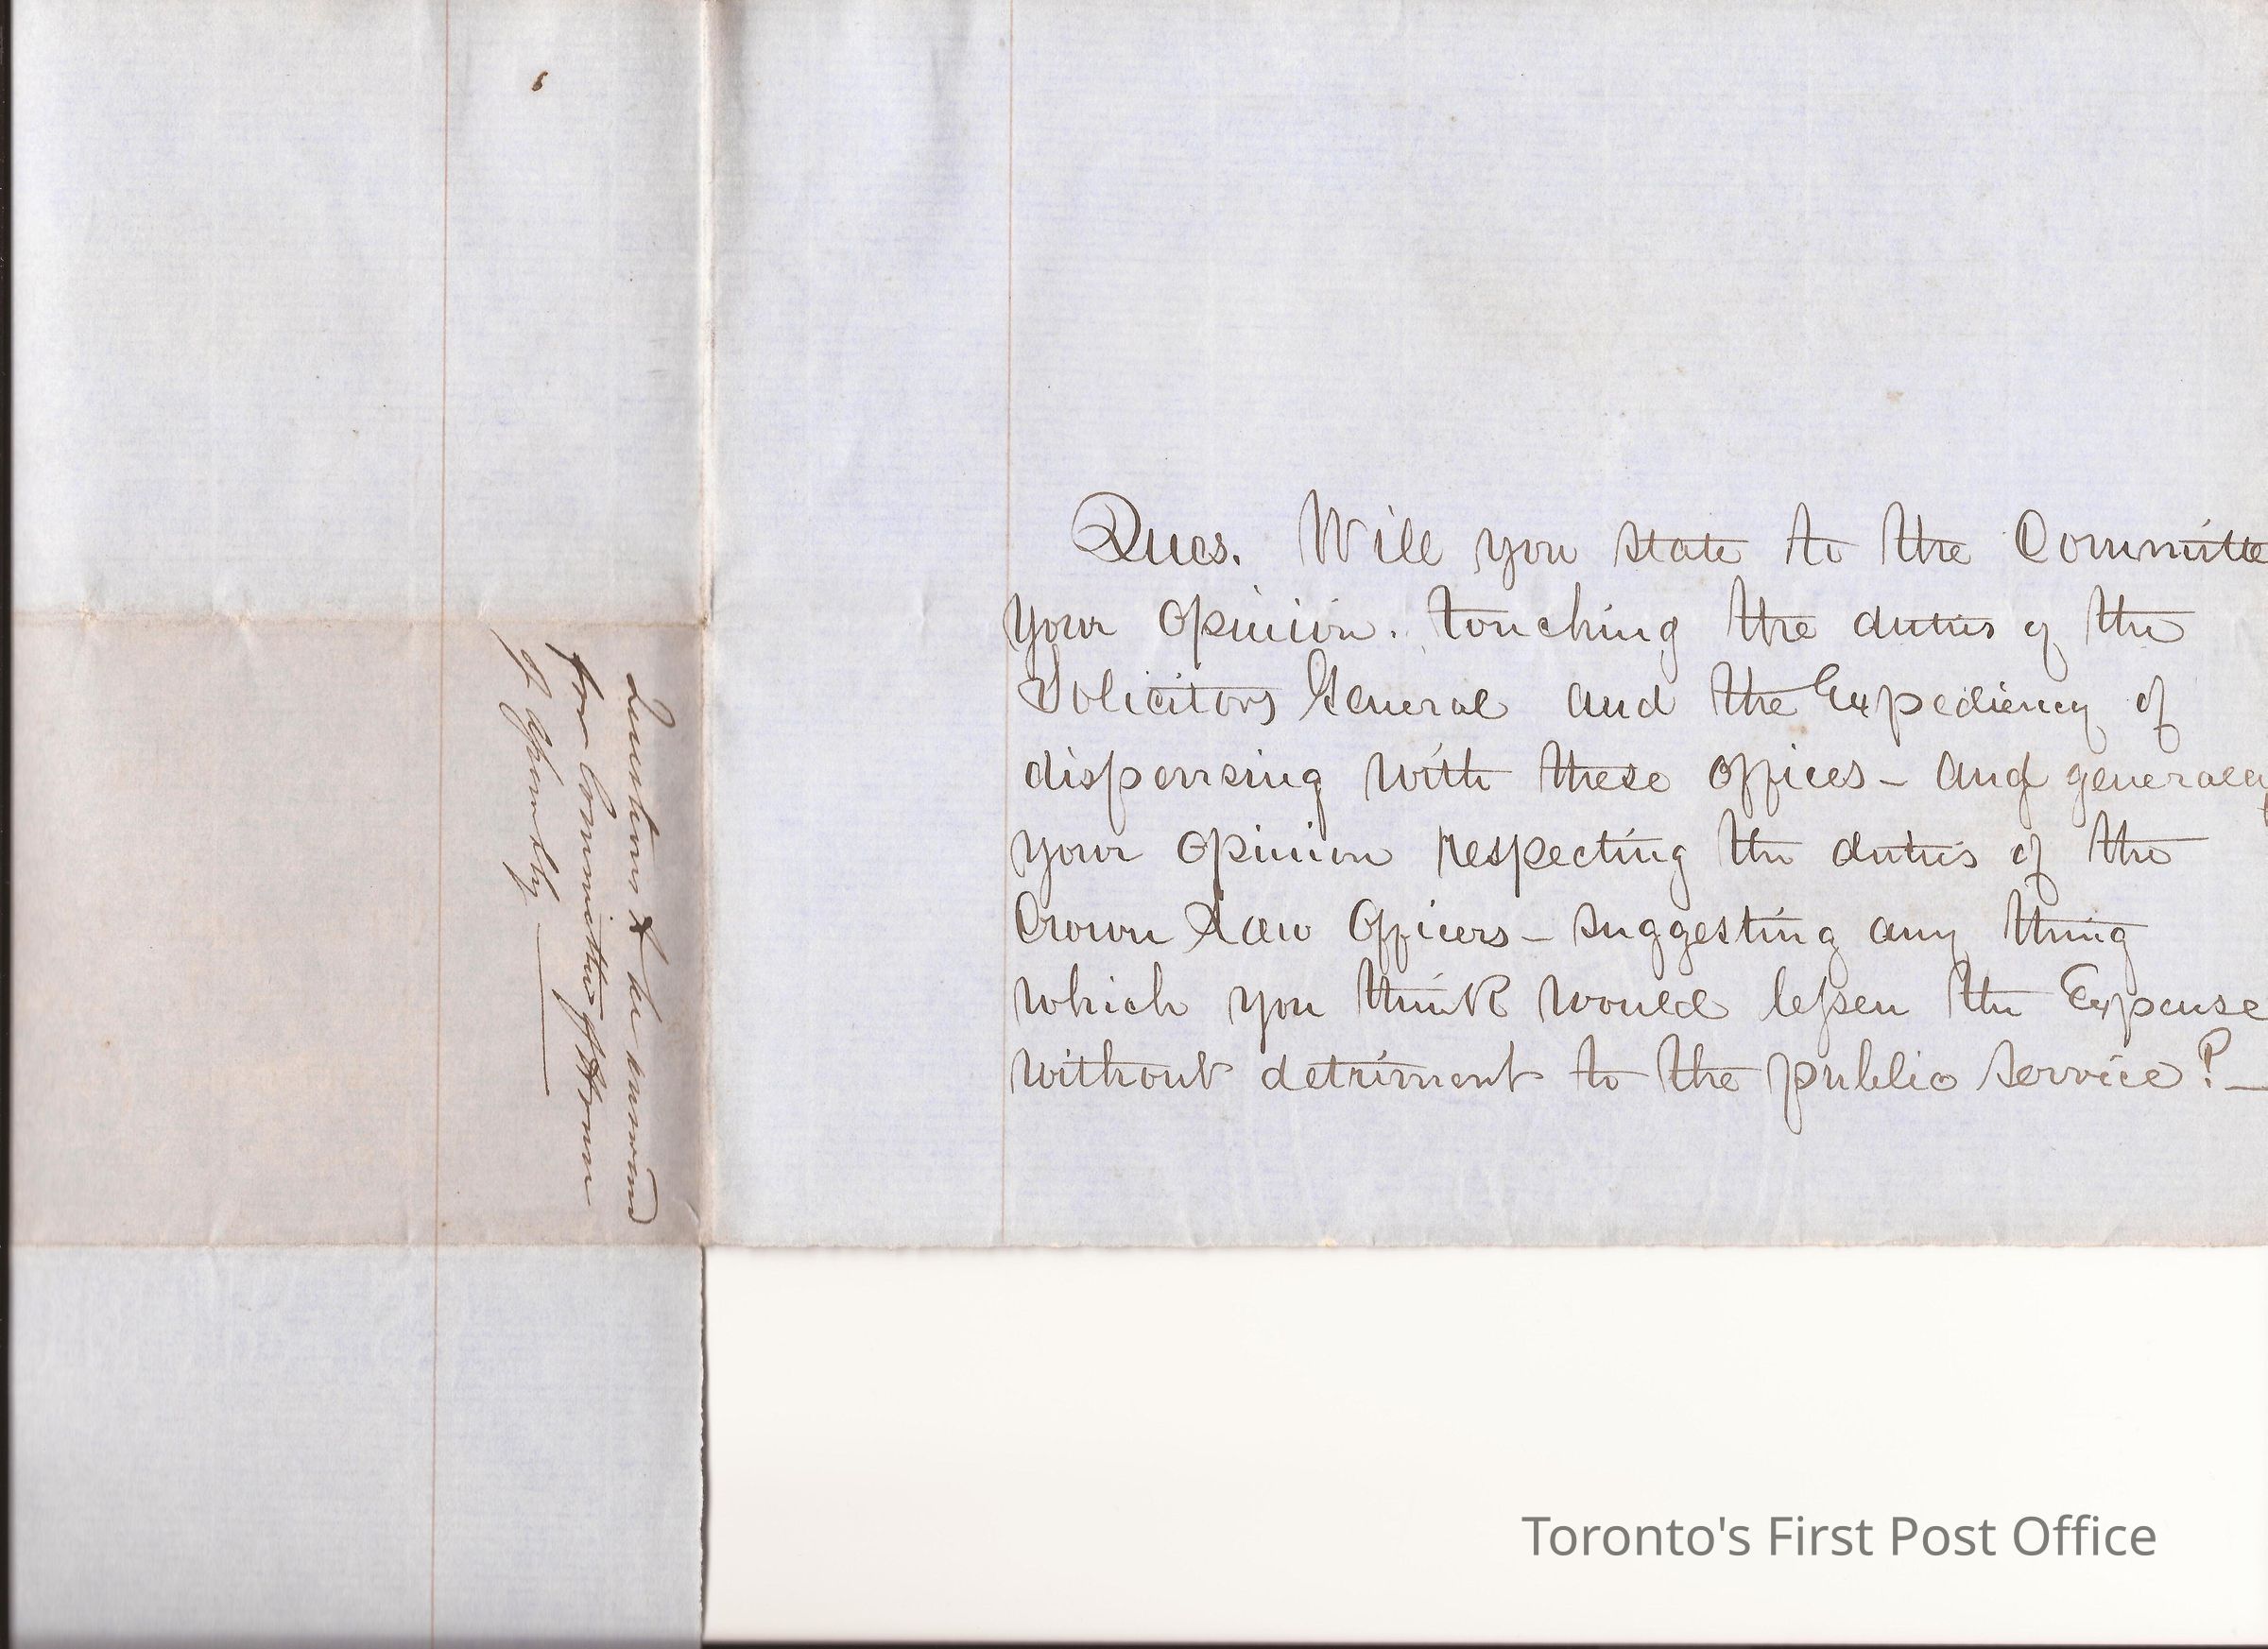 Questions to be answered
for Committee of House
of Assembly —
Ques. Will you state to the Committe
your opinion. touching the duties of the
Solicitors General and the Expediency of
dispensing with these offices – and generally
your opinion respecting the duties of the
Crown Law Officers – suggesting any thing
which you think would lessen the Expense
without detriment to the public service? —
Toronto's First Post Office